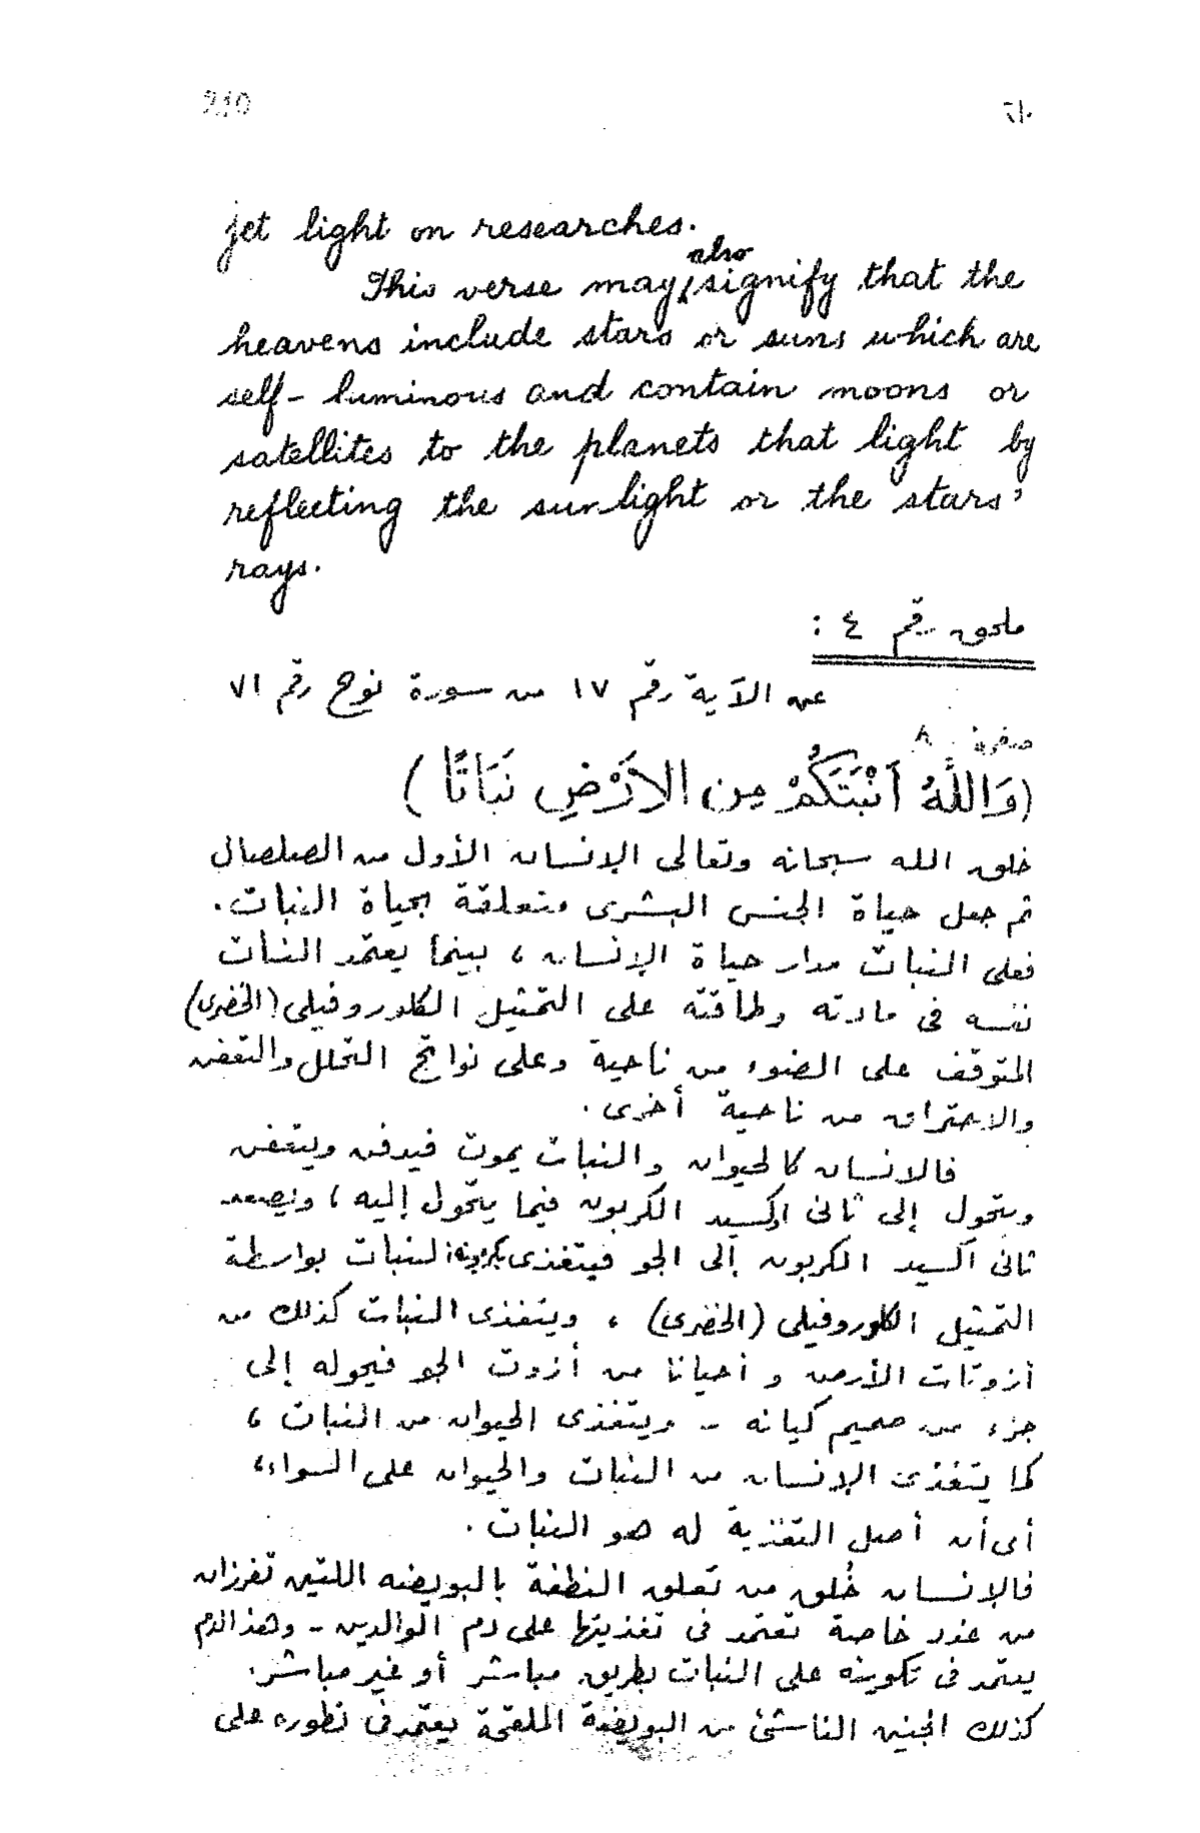 jet light on researches.
This verse may also signify that the
heavens include stars or suns which are
self-luminous and contain moons or
satellites to the planets that light by
reflecting the sunlight or the stars'
rays.
ملحق رقم ٤ :
عن الآية رقم ١٧ من سورة نوح رقم ٧١
صفحة ٨
(وَاللَّهُ أَنْبَتَكُمْ مِن الأَرْضِ نَبَاتًا)
خلق الله سبحانه وتعالى الإنسان الأول من الصلصال
ثم جعل حياة الجنس البشرى متعلقة بحياة النبات.
فعلى النبات مدار حياة الإنسان ، بينما يعتمد النبات
نفسه فى مادته وطاقته على التمثيل الكلوروفيلى (الخضرى)
المتوقف على الضوء من ناحية وعلى نواتج التحلل والتعفن
والاحتراق من ناحية أخرى .
فالانسان كالحيوان والنبات يموت فيدفن ويتعفن
ويتحول إلى ثانى اكسيد الكربون فيما يتحول إليه ، ويصعد
ثانى أكسيد الكربون إلى الجو فيتغذى بكربونه النبات بواسطة
التمثيل الكلوروفيلى (الخضرى) ، ويتغذى النبات كذلك من
أزوتات الأرض و أحيانا من أزوت الجو فيحوله إلى
جزء من صميم كيانه - ويتغذى الحيوان من النبات ،
كما يتغذى الإنسان من النبات والحيوان على السواء ،
أى أن أصل التغذية له هو النبات .
فالإنسان خُلق من تعلق النطفة بالبويضه اللتين تفرزان
من غدد خاصة تعتمد فى تغذيتها على دم الوالدين - وهذ الدم
يعتمد فى تكوينه على النبات بطريق مباشر أو غير مباشر.
كذلك الجنين الناشئ من البويضة الملقحة يعتمد فى تطوره على